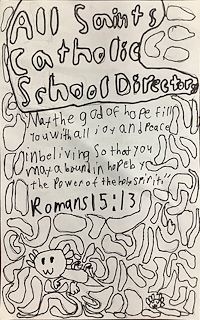 All Saints
Catholic
School Directory
"May the god of hope fill
you with all joy and peace
in beliving so that you
may abound in hope by
the power of the holy spirit."
Romans 15:13